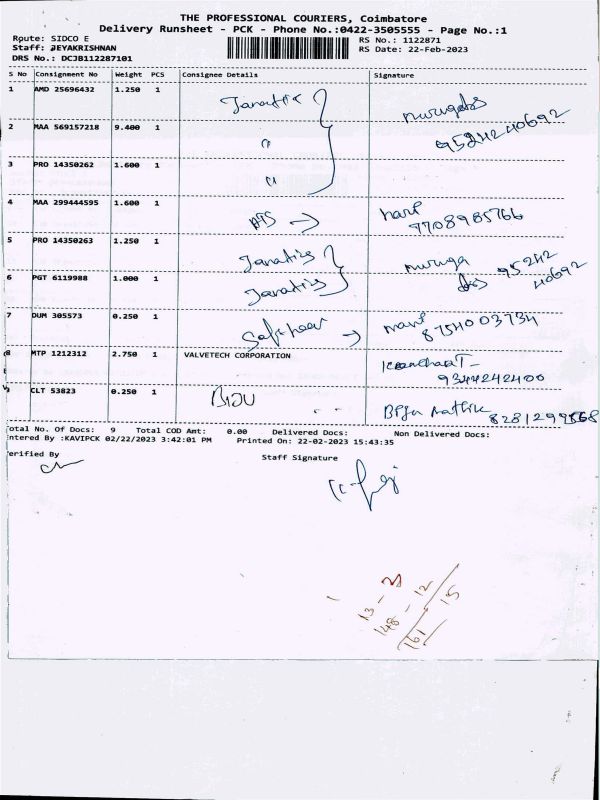 THE PROFESSIONAL COURIERS, Coimbatore
Delivery Runsheet - PCK - Phone No.:0422-3505555 - Page No.:1
Rpute: SIDCO E
RS No.: 1122871
Staff: JEYAKRISHNAN
RS Date: 22-Feb-2023
DRS No.: DCJB112287101
S No Consignment No Weight PCS Consignee Details Signature
1 AMD 25696432 1.250 1 Janatix
2 MAA 569157218 9.400 1 " 9524240692
3 PRO 14350262 1.600 1 "
4 MAA 299444595 1.600 1 7708985766
5 PRO 14350263 1.250 1 Janatics muruga 95242
6 PGT 6119988 1.000 1 Janatics 40692
7 DUM 305573 0.250 1 8754003734
8 MTP 1212312 2.750 1 VALVETECH CORPORATION
9344242400
CLT 53823 0.250 1 8281299868
Total No. Of Docs: 9 Total COD Amt: 0.00 Delivered Docs: Non Delivered Docs:
ntered By :KAVIPCK 02/22/2023 3:42:01 PM Printed On: 22-02-2023 15:43:35
erified By Staff Signature
13 - 3
148 - 12
161 15